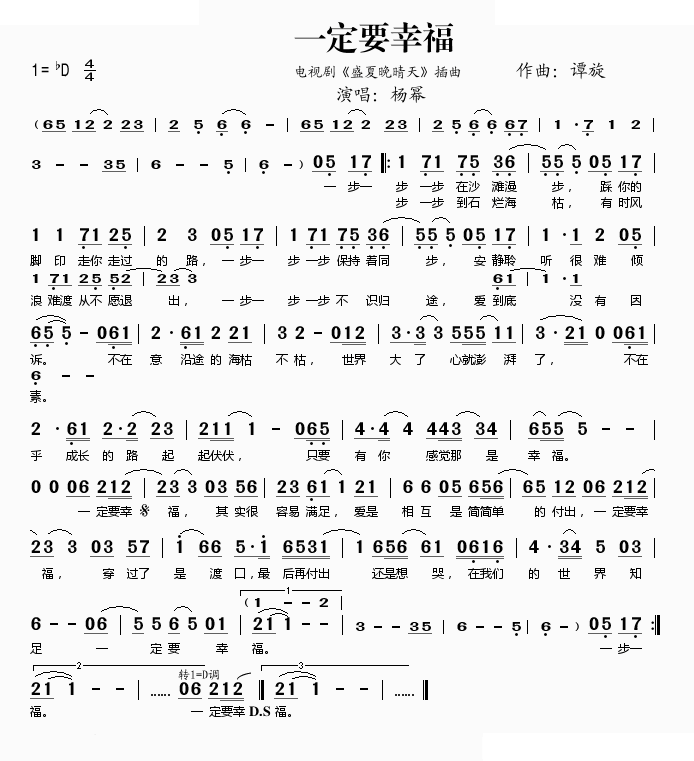 一定要幸福
1= ♭D 4/4
电视剧《盛夏晚晴天》插曲 作曲：谭旋
演唱：杨幂
( 65 12 2 23 | 2 5 6 6 - | 65 12 2 23 | 2 5 6 6 67 | 1 · 7 1 2 |
3 - - 35 | 6 - - 5 | 6 - ) 05 17 ‖: 1 71 75 36 | 55 5 05 17 |
一步一 步 一步 在沙 滩漫 步， 踩 你的
步 一步 到石 烂海 枯， 有 时风
1 1 71 25 | 2 3 05 17 | 1 71 75 36 | 55 5 05 17 | 1 · 1 2 05 |
脚 印 走你 走过 的 路， 一步一 步 一步 保持 着同 步， 安 静聆 听 很 难 倾
1 71 25 52 | 23 3 61 | 1 · 1
浪 难渡 从不 愿退 出， 一步一 步 一步 不 识归 途， 爱 到底 没 有 因
65 5 - 061 | 2 · 61 2 21 | 3 2 - 012 | 3 · 3 3 555 11 | 3 · 21 0 061 |
诉。 不在 意 沿途 的 海枯 不 枯， 世界 大 了 心就澎 湃 了， 不在
6 - -
素。
2 · 61 2·2 23 | 211 1 - 065 | 4 · 4 4 443 34 | 655 5 - - |
乎 成长 的 路 起 起伏伏， 只要 有 你 感觉那 是 幸 福。
0 0 06 212 | 23 3 03 56 | 23 61 1 21 | 6 6 05 656 | 65 12 06 212 |
一 定要幸 福， 其 实很 容易 满足， 爱是 相 互 是 简简单 的 付出， 一 定要幸
23 3 03 57 | 1 66 5·1 6531 | 1 656 61 0616 | 4 · 34 5 03 |
福， 穿 过了 是 渡 口，最 后再付出 还是想 哭， 在我们 的 世 界 知
1
( 1 - - 2 )
6 - - 06 | 5 5 6 5 01 | 21 1 - - | 3 - - 35 | 6 - - 5 | 6 - ) 05 17 :‖
足 一 定 要 幸 福。 一步一
2 转1=D调 3
21 1 - - | ...... 06 212 ‖ 21 1 - - | ...... ‖
福。 一 定要幸 D.S 福。